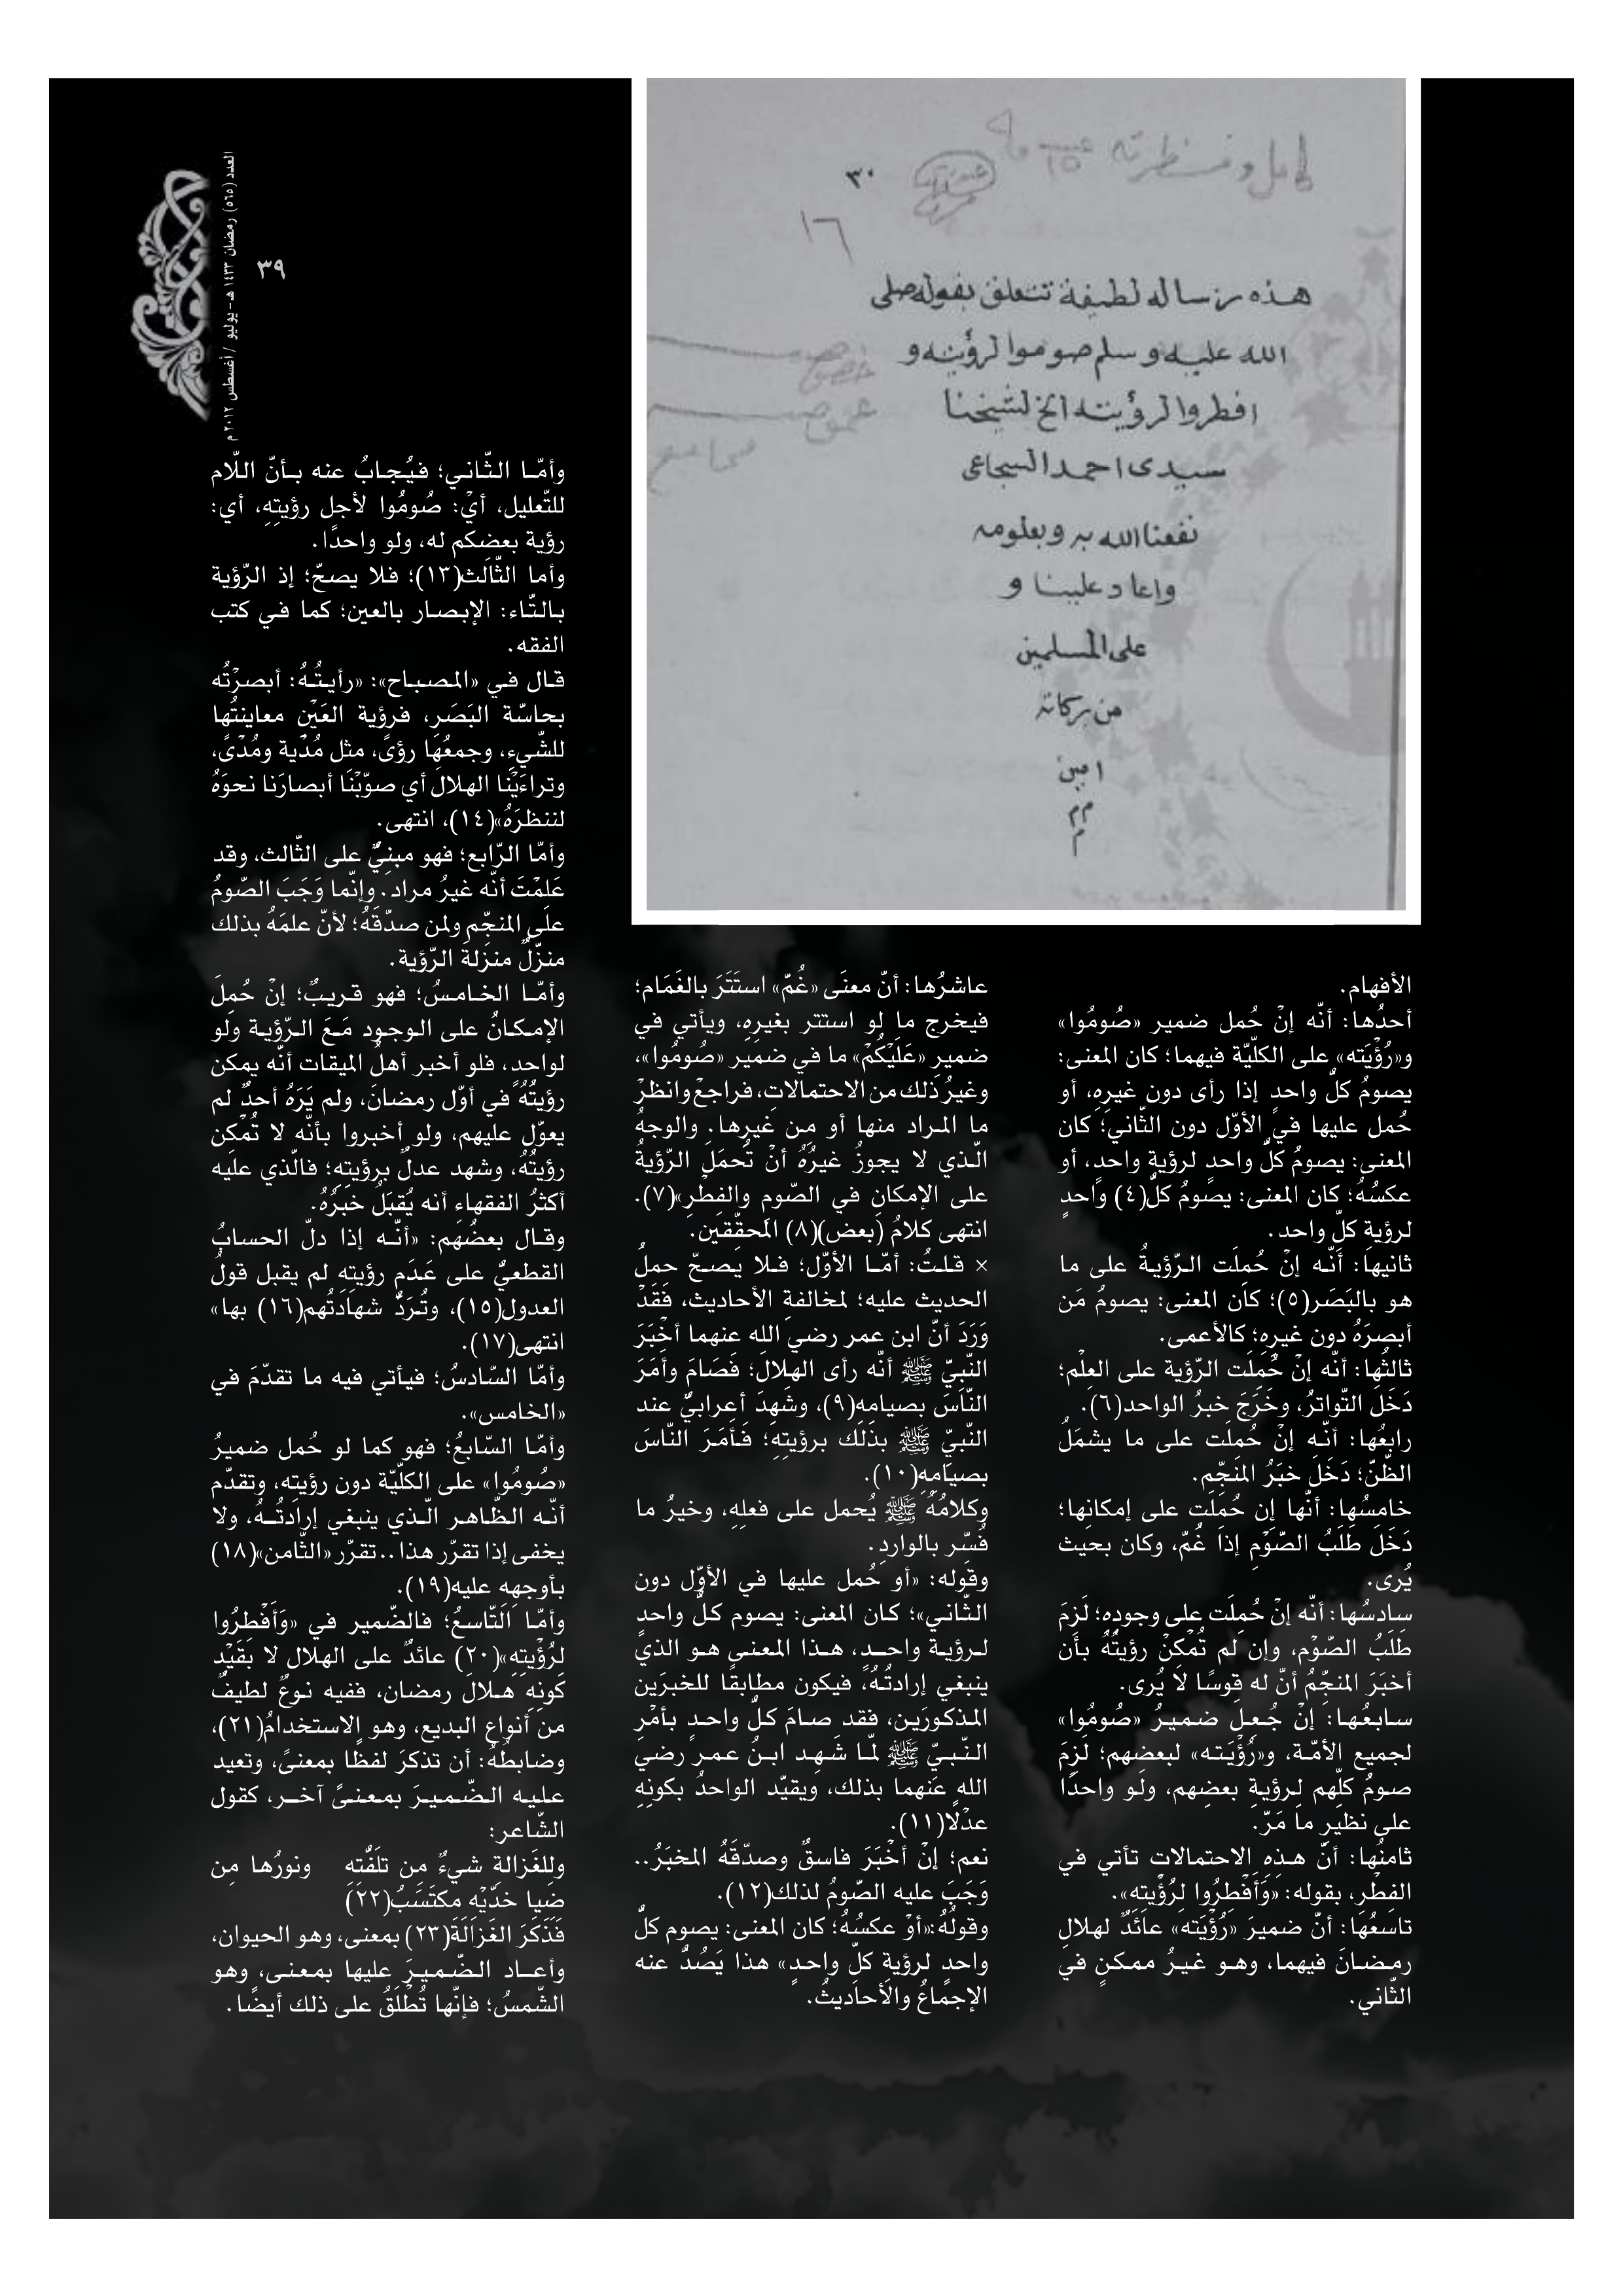 العدد (٥٦٥) رمضان ١٤٣٣ هـ - يوليو / أغسطس ٢٠١٢ م
٣٩
٣٠
١٦
هذه رسالة لطيفة تتعلق بقوله صلى
الله عليه وسلم صوموا لرؤيته و
افطروا لرؤيته الخ لشيخنا
سيدى احمد السجاعى
نفعنا الله به وبعلومه
واعاد علينا و
على المسلمين
من بركاته
امين
م م
م
الأفهام.
أحدُها: أنّه إنْ حُمل ضمير «صُومُوا»
و«رُؤْيَته» على الكلّيّة فيهما؛ كان المعنى:
يصومُ كلُّ واحدٍ إذا رأى دون غيرِهِ، أو
حُمل عليها في الأوّل دون الثّاني؛ كان
المعنى: يصومُ كلُّ واحدٍ لرؤيةِ واحدٍ، أو
عكسُهُ؛ كان المعنى: يصومُ كلُّ(٤) واحدٍ
لرؤيةِ كلِّ واحد.
ثانيها: أنّه إنْ حُملَت الرّؤيةُ على ما
هو بالبَصَر(٥)؛ كان المعنى: يصومُ مَن
أبصرَهُ دون غيرِهِ؛ كالأعمى.
ثالثُها: أنّه إنْ حُملَت الرّؤية على العِلْم؛
دَخَلَ التّواترُ، وخَرَجَ خبرُ الواحد(٦).
رابعُها: أنّه إنْ حُملَت على ما يشمَلُ
الظّنّ؛ دَخَلَ خبَرُ المنَجّمِ.
خامسُها: أنّها إن حُمَلَت على إمكانِها؛
دَخَلَ طَلَبُ الصّوْمِ إذَا غُمّ، وكان بحيث
يُرى.
سادسُها: أنّه إنْ حُمِلَت على وجودِهِ؛ لَزِمَ
طَلَبُ الصّوْم، وإن لم تُمْكنْ رؤيتُهُ بأن
أخبَرَ المنجّمُ أنّ له قوسًا لَا يُرى.
سابعُها: إنْ جُعلَ ضميرُ «صُومُوا»
لجميع الأمّة، و«رُؤْيَته» لبعضِهم؛ لَزِمَ
صومُ كلِّهم لرؤيةِ بعضِهم، ولَو واحدًا
على نظيرِ ما مَرّ.
ثامنُها: أنّ هذِهِ الاحتمالاتِ تأتي في
الفِطْرِ، بقوله: «وَأَفْطِرُوا لِرُؤْيتِهِ».
تاسعُها: أنّ ضميرَ «رُؤْيَته» عائدٌ لهلالِ
رمضانَ فيهما، وهو غيرُ ممكنٍ في
الثّاني.
عاشرُها: أنّ معنَى «غُمّ» استَتَرَ بالغَمَام؛
فيخرج ما لو استتر بغيرِهِ، ويأتي في
ضميرِ «عَلَيْكُمْ» ما في ضميرِ «صُومُوا»،
وغيرُ ذلك من الاحتمالات، فراجعْ وانظرْ
ما المراد منها أو من غيرِها. والوجهُ
الّذي لا يجوزُ غيرُهُ أنْ تُحمَلَ الرّؤيةُ
على الإمكانِ في الصّومِ والفِطْرِ»(٧).
انتهى كلامُ (بعض)(٨) المحقّقين.
× قلتُ: أمّا الأوّل؛ فلا يَصحّ حملُ
الحديث عليه؛ لمخالفةِ الأحاديث، فَقَدْ
وَرَدَ أنّ ابن عمر رضي الله عنهما أخْبَرَ
النّبيّ ﷺ أنّه رأى الهلالَ؛ فَصَامَ وأمَرَ
النّاسَ بصيامه(٩)، وشَهِدَ أعرابيٌّ عند
النّبيّ ﷺ بذَلَك برؤيتِهِ؛ فَأمَرَ النّاسَ
بصيَامِهِ(١٠).
وكلامُهُ ﷺ يُحمل على فعلِهِ، وخيرُ ما
فُسّر بالواردِ.
وقوله: «أو حُمل عليها في الأوّل دون
الثّاني»؛ كان المعنى: يصوم كلُّ واحدٍ
لرؤية واحـدٍ، هـذا المعنى هـو الذي
ينبغي إرادتُهُ، فيكون مطابقًا للخبرَين
المذكورَين، فقد صامَ كلُّ واحدٍ بأمْرِ
النّبيّ ﷺ لمّا شَهِد ابنُ عمر رضي
الله عنهما بذلك، ويقيّد الواحدُ بكونِهِ
عدْلًا(١١).
نعم؛ إنْ أخْبَرَ فاسقٌ وصدّقَهُ المخبَرُ..
وَجَبَ عليه الصّومُ لذلك(١٢).
وقولُهُ: «أوْ عكسُهُ؛ كان المعنى: يصوم كلُّ
واحدٍ لرؤيةِ كلّ واحدٍ» هذا يَصُدُّ عنه
الإجمَاعُ والأحاديثُ.
وأمّـا الثّـاني؛ فيُجابُ عنه بـأنّ اللّام
للتّعليل، أيْ: صُومُوا لأجلِ رؤيتِهِ، أي:
رؤية بعضكم له، ولو واحدًا.
وأما الثّالث(١٣)؛ فلا يصحّ؛ إذ الرّؤية
بالتّاء: الإبصار بالعين؛ كما في كتب
الفقه.
قال في «المصباح»: «رأيتُـهُ: أبصرْتُه
بحاسّة البَصَرِ، فرؤية العَيْنِ معاينتُها
للشّيءِ، وجمعُها رؤىً، مثل مُدْية ومُدىً،
وتراءَيْنا الهلالَ أي صوّبْنَا أبصارَنا نحوَهُ
لننظرَهُ»(١٤)، انتهى.
وأمّا الرّابع؛ فهو مبنيٌّ على الثّالث، وقد
عَلمْتَ أنّه غيرُ مراد. وإنّما وَجَبَ الصّومُ
على المنجّم ولمن صدّقَهُ؛ لأنّ علمَهُ بذلك
منزّلٌ منزلةَ الرّؤية.
وأمّـا الخامسُ؛ فهو قريبٌ؛ إنْ حُمِلَ
الإمكانُ على الوجود مَعَ الرّؤيـة ولو
لواحدٍ، فلو أخبر أهلُ الميقات أنّه يمكن
رؤيتُهُ في أوّل رمضانَ، ولم يَرَهُ أحدٌ لم
يعوّل عليهم، ولو أخبروا بأنّه لا تُمْكِن
رؤيتُهُ، وشهد عدلٌ برؤيتِهِ؛ فالّذي عليه
أكثرُ الفقهاء أنه يُقبَلُ خبَرُهُ.
وقـال بعضُهُم: «أنّـه إذا دلّ الحسابُ
القطعيُّ على عَدَمِ رؤيتِهِ لم يقبل قولُ
العدول(١٥)، وتُـرَدُّ شهادتُهم(١٦) بها»
انتهى(١٧).
وأمّا السّادسُ؛ فيأتي فيه ما تقدّمَ في
«الخامس».
وأمّا السّابعُ؛ فهو كما لو حُمل ضميرُ
«صُومُوا» على الكلّيّة دون رؤيته، وتقدّم
أنّه الظّاهر الّذي ينبغي إرادتُـهُ، ولا
يخفى إذا تقرّر هذا.. تقرّر «الثّامن»(١٨)
بأوجهِهِ عليه(١٩).
وأمّا التّاسعُ؛ فالضّمير في «وَأَفْطِرُوا
لرُؤْيتِهِ»(٢٠) عائدٌ على الهلال لا بقَيْد
كَونِهِ هلالَ رمضان، ففيه نوعٌ لطيفٌ
من أنواع البديع، وهو الاستخدامُ(٢١)،
وضابطُهُ: أن تذكرَ لفظًا بمعنىً، وتعيد
عليه الضّميرَ بمعنىً آخـر، كقول
الشّاعر:
وللغَزالةِ شيءٌ من تلَفّتِه ونورُها مِن
ضَيا خدّيْه مكتَسَبُ(٢٢)
فَذَكَرَ الغَزَالَةَ(٢٣) بمعنى، وهو الحيوان،
وأعـاد الضّميرَ عليها بمعنى، وهو
الشّمسُ؛ فإنّها تُطْلَقُ على ذلك أيضًا.